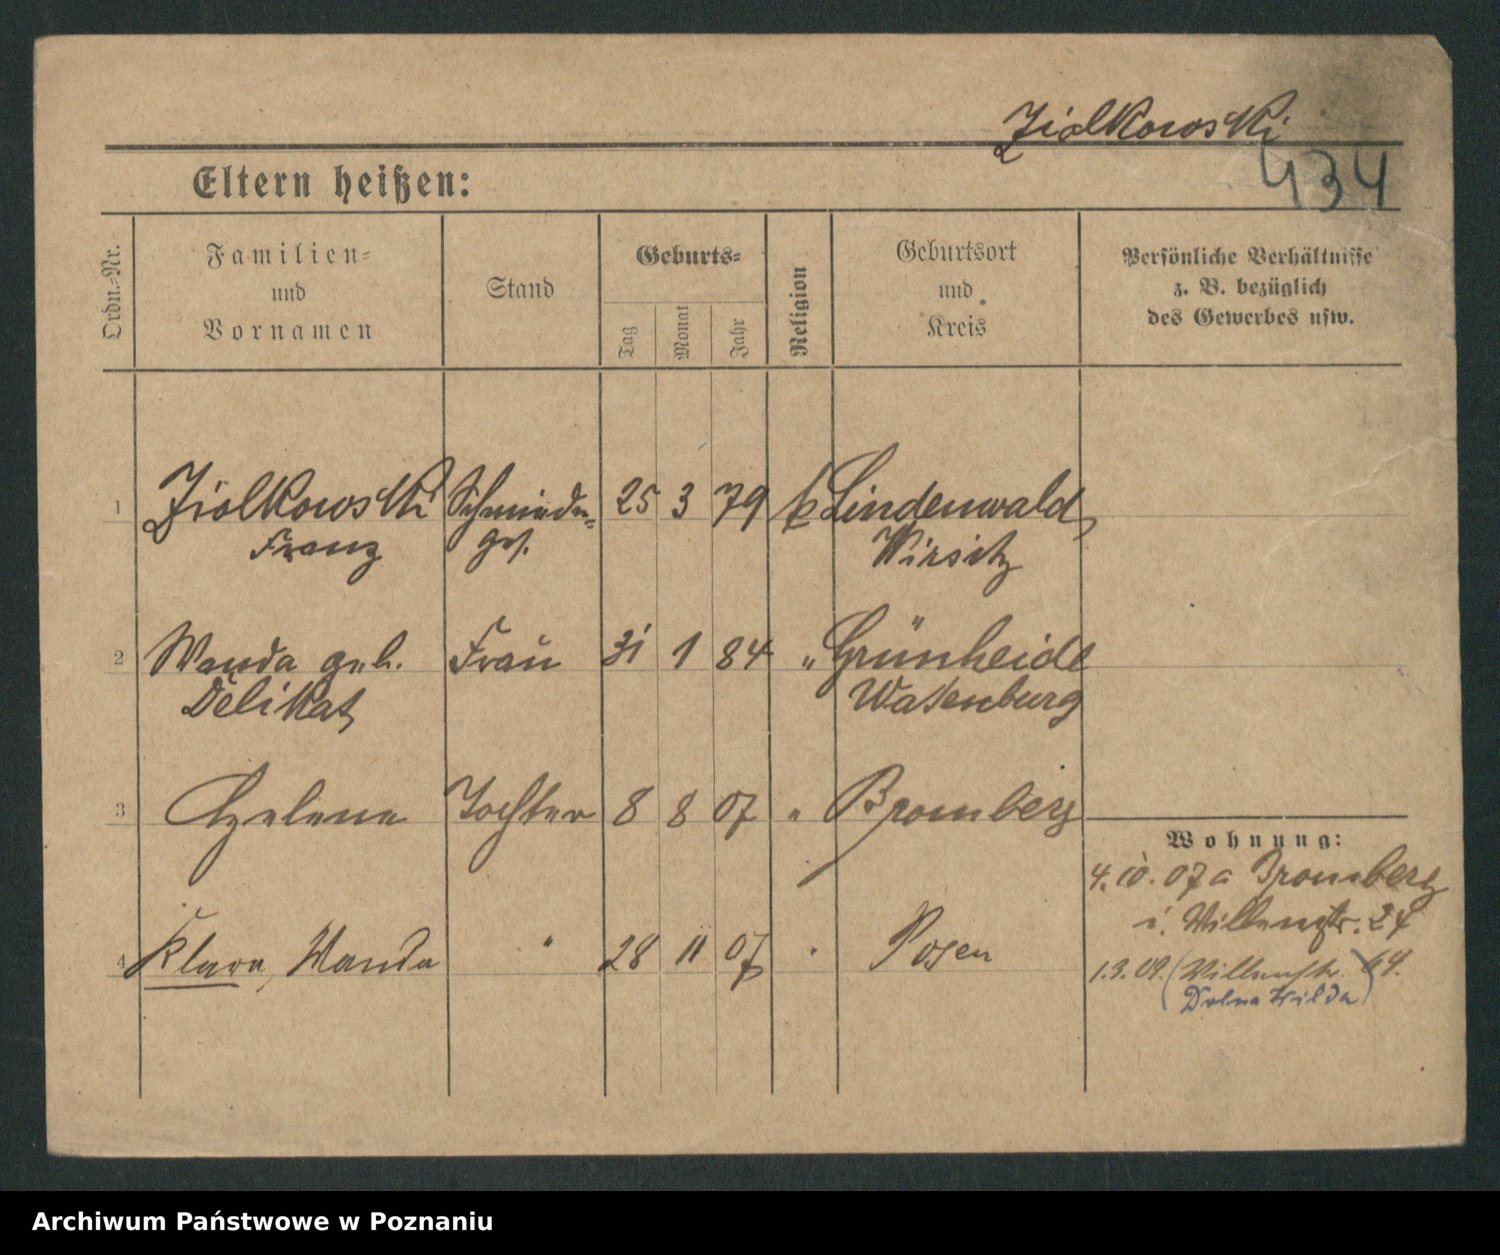 Ziolkowski
434
Eltern heißen:
Ordn.-Nr.
Familien-
und
Vornamen
Stand
Geburts-
Tag
Monat
Jahr
Religion
Geburtsort
und
Kreis
Persönliche Verhältnisse
z. B. bezüglich
des Gewerbes usw.
1 Ziolkowski Schmiede- 25 3 79 k Lindenwald
Franz ges. Wirsitz
2 Wanda geb. Frau 31 1 84 " Grünheide
Delikat
3 Helene Tochter 8 8 07 " Bromberg
Wohnung:
4. 10. 07 a Bromberg
i.
4 Klara, Wanda " 28 11 07 " Posen
1.9.09. 64.
Dolna Wilda
Archiwum Państwowe w Poznaniu